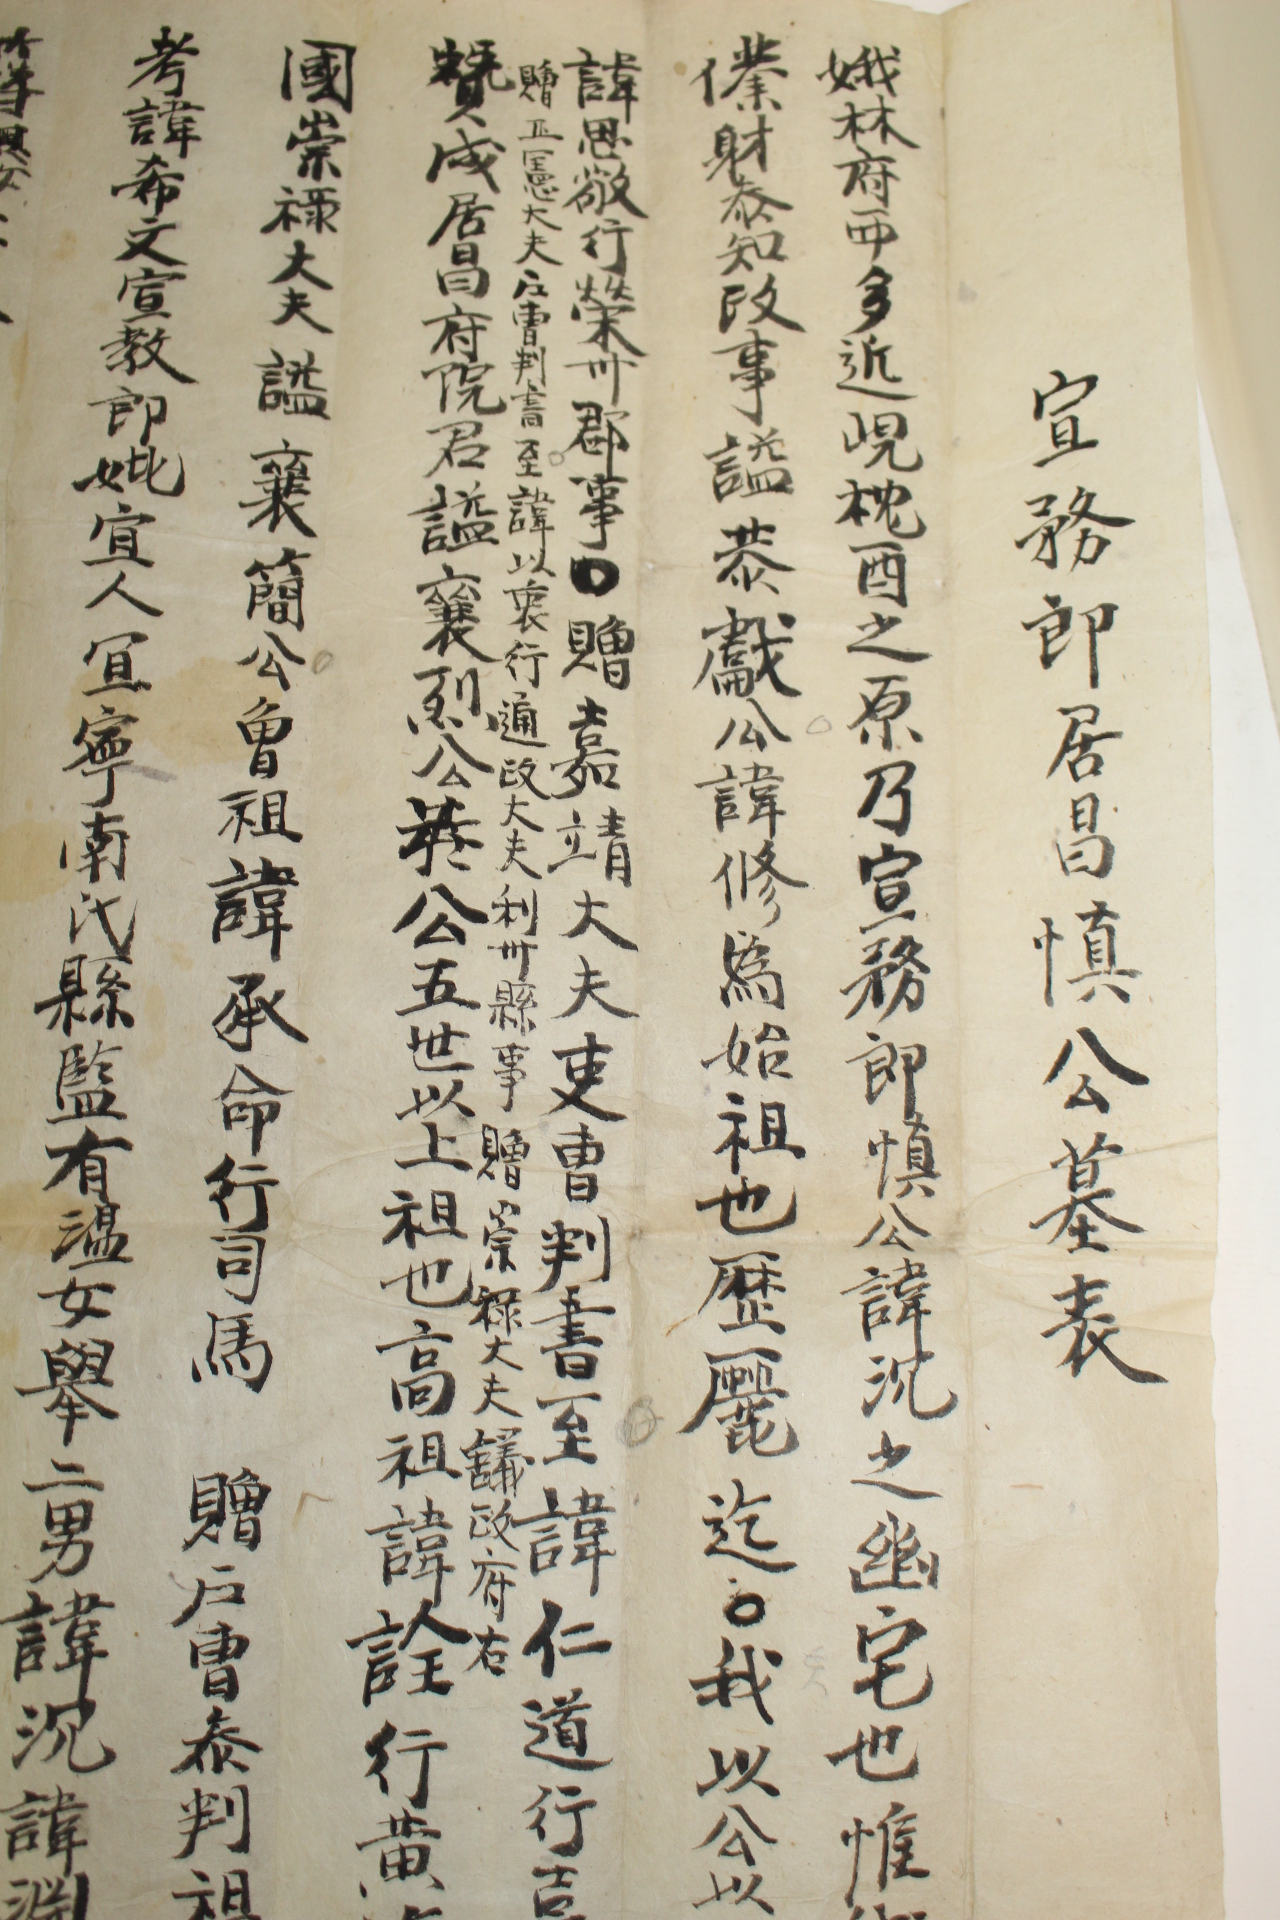 宣務郎居昌慎公墓表
娥林府西多近峴枕酉之原乃宣務郎慎公諱沉之幽宅也惟
僕射叅知政事諡恭獻公諱修爲始祖也歷麗迄○我以公以
諱思敬行榮州郡事○贈嘉靖大夫吏曹判書至諱仁道行吉
贈正憲大夫戶曹判書至諱以衷行通政大夫利州縣事贈崇祿大夫議政府右
贊成居昌府院君諡襄烈公於公五世以上祖也高祖諱詮行黃
國崇祿大夫諡襄簡公曾祖諱承命行司馬贈戶曹叅判祖
考諱希文宣教郎妣宜人宜寧南氏縣監有溫女舉二男諱沉諱淵